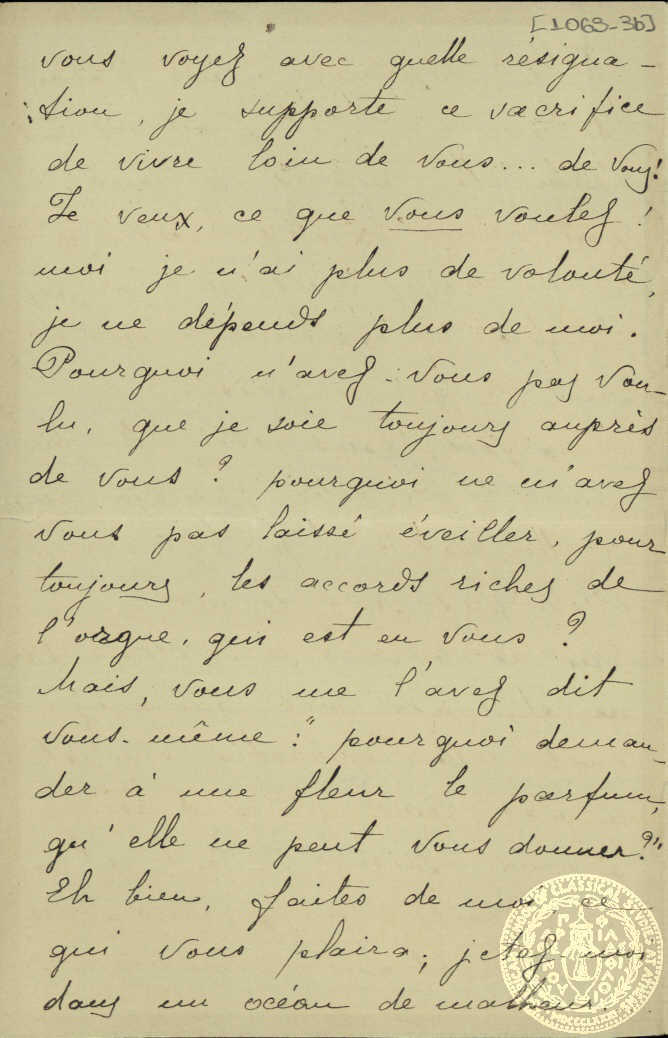 [1063-3b]
vous voyez avec quelle résigna-
tion, je supporte ce sacrifice
de vivre loin de vous... de vous!
Je veux, ce que vous voulez!
moi je n'ai plus de volonté,
je ne dépends plus de moi.
Pourquoi n'avez-vous pas vou-
lu, que je soie toujours auprès
de vous? pourquoi ne m'avez
vous pas laissé éveiller, pour
toujours, les accords riches de
l'orgue, qui est en vous?
Mais, vous me l'avez dit
vous-même: "pourquoi deman-
der à une fleur le parfum,
qu'elle ne peut vous donner?"
Eh bien, faites de moi, ce
qui vous plaira; jetez-moi
dans un océan de malheurs
CLASSICAL STUDIES AT
MDCCCLXXXI